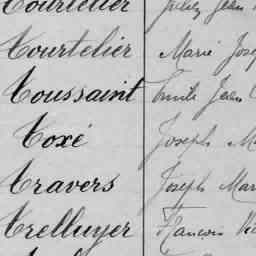 Courtelier Jean
Tourtelier Marie Jose
Toussaint Emile Jean
Toxé Joseph Ma
Travers Joseph Mar
Trelluyer François